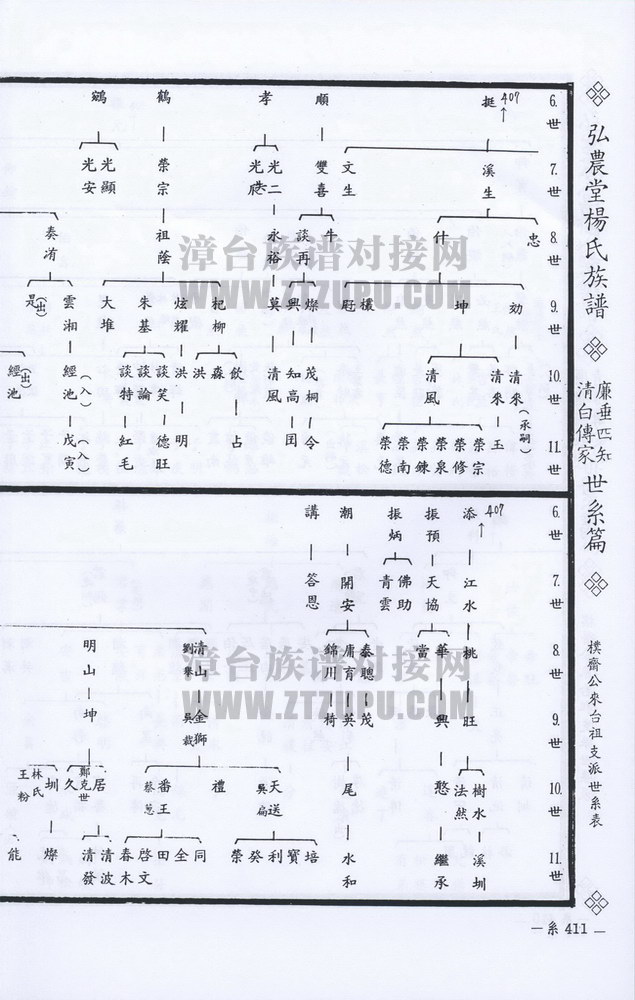 弘農堂楊氏族譜
廉垂四知
清白傳家
世系篇
樸齋公來台祖支派世系表
一系 411 一
6.世
挺
407
順
孝
鶴
鵷
7.世
溪生
文生
雙喜
光二
光庇
榮宗
光顯
光安
8.世
忠
什
牛
談再
永裕
祖蔭
奏淯
9.世
効
坤
欉
燦
興
莫
杞柳
炫耀
朱基
大堆
雲湘
(出)
10.世
清來(承嗣)
清來
清風
茂桐
知高
清風
飲
淼
洪
洪
談笑
談論
談特
(入)
經池
(出)
經池
11.世
玉
榮宗
榮修
榮泉
榮錬
榮南
榮德
令
囯
占
明
德旺
紅毛
(入)
戊寅
6.世
添
407
振預
振炳
潮
講
7.世
江水
天協
佛助
青雲
開安
答恩
8.世
桃
華
當
泰聰
庸育
錦川
清山
劉舉
明山
9.世
旺
興
茂
英
椅
金獅
吳裁
坤
10.世
樹水
法然
憨
尾
天送
吳扁
禮
番王
蔡葱
居
鄭克世
久
圳
林氏
王粉
11.世
溪圳
繼承
水和
培
寶
利
癸
榮
同
全
田
啓文
春木
清波
清發
燦
能
漳台族谱对接网
WWW.ZTZUPU.COM
漳台族谱对接网
WWW.ZTZUPU.COM